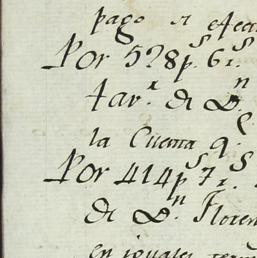 pago el efec
Por 528 p.s 6 r.s
tar.x de D.n
la Cuenta q.e
Por 414 p.s 7 r.s
de D.n Floren
en iguales term